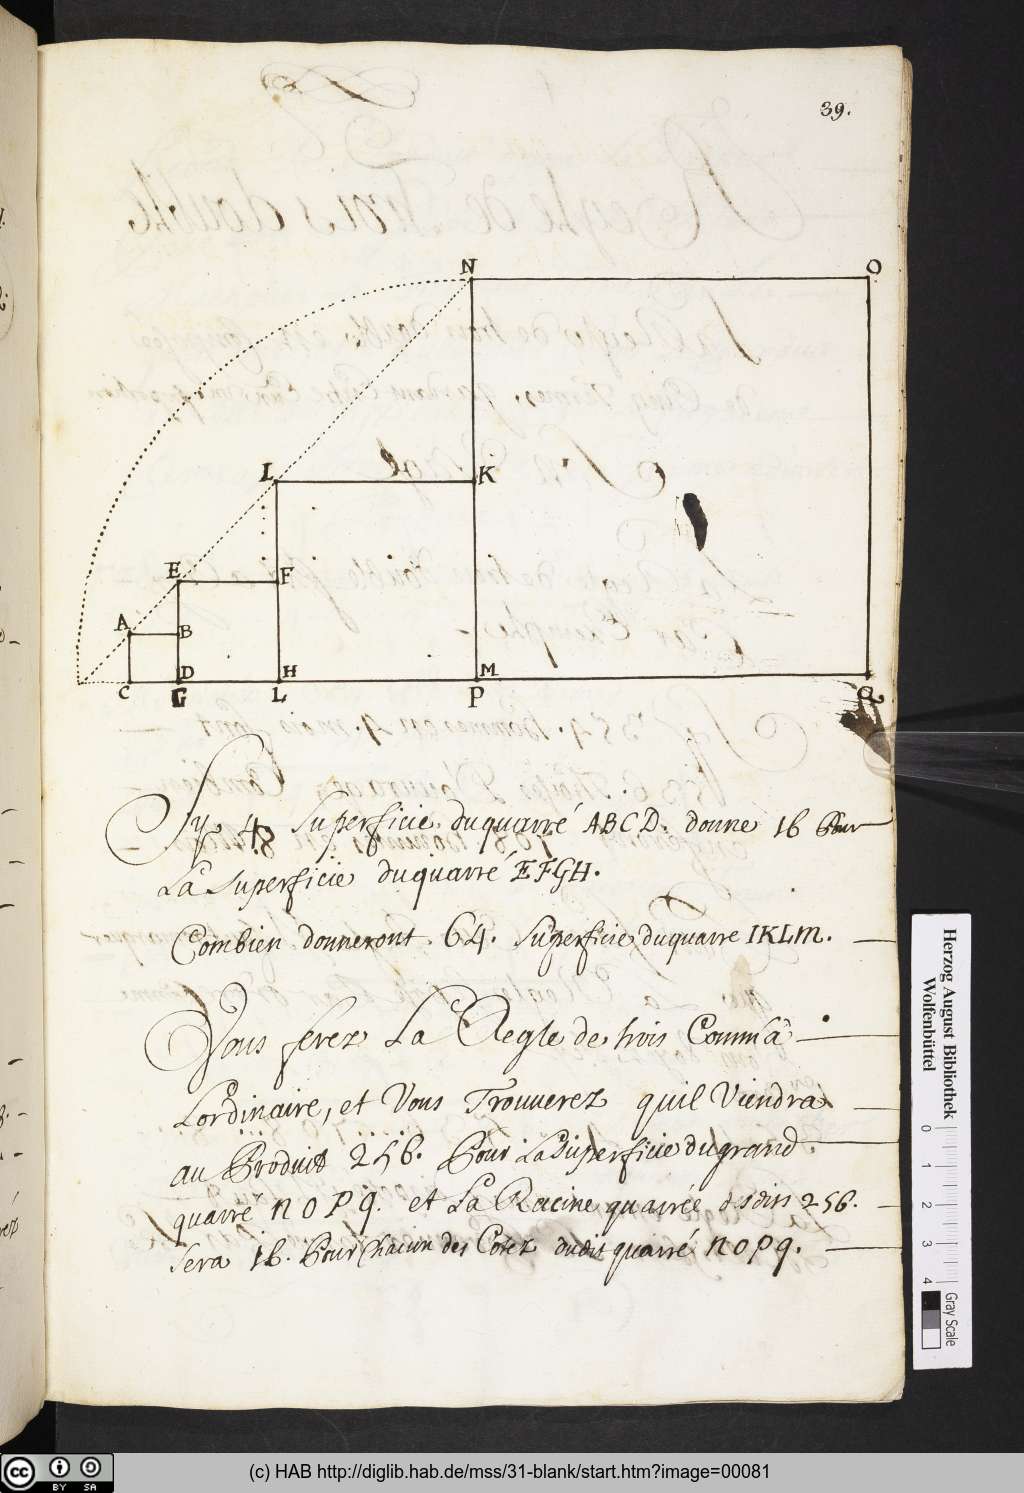 39.
N O
L K
E F
A B
D H M
C G L P Q
Sy. 4 Superficie. du quarré ABCD. donne 16 Pour
La Superficie du quarré EFGH.
Combien donneront. 64. Superficie du quarre IKLM.
Vous ferez La Regle de trois Comm'a
Lordinaire, et Vous Trouverez quil Viendra
au Produit 256. Pour La Superficie du grand.
quarré n o p q. et La Racine quarrée desdits 256.
Sera 16. Pour Chacun des Costez dudit quarré n o p q.
Herzog August Bibliothek
Wolfenbüttel
0 1 2 3 4
Gray Scale
cc BY SA
(c) HAB http://diglib.hab.de/mss/31-blank/start.htm?image=00081